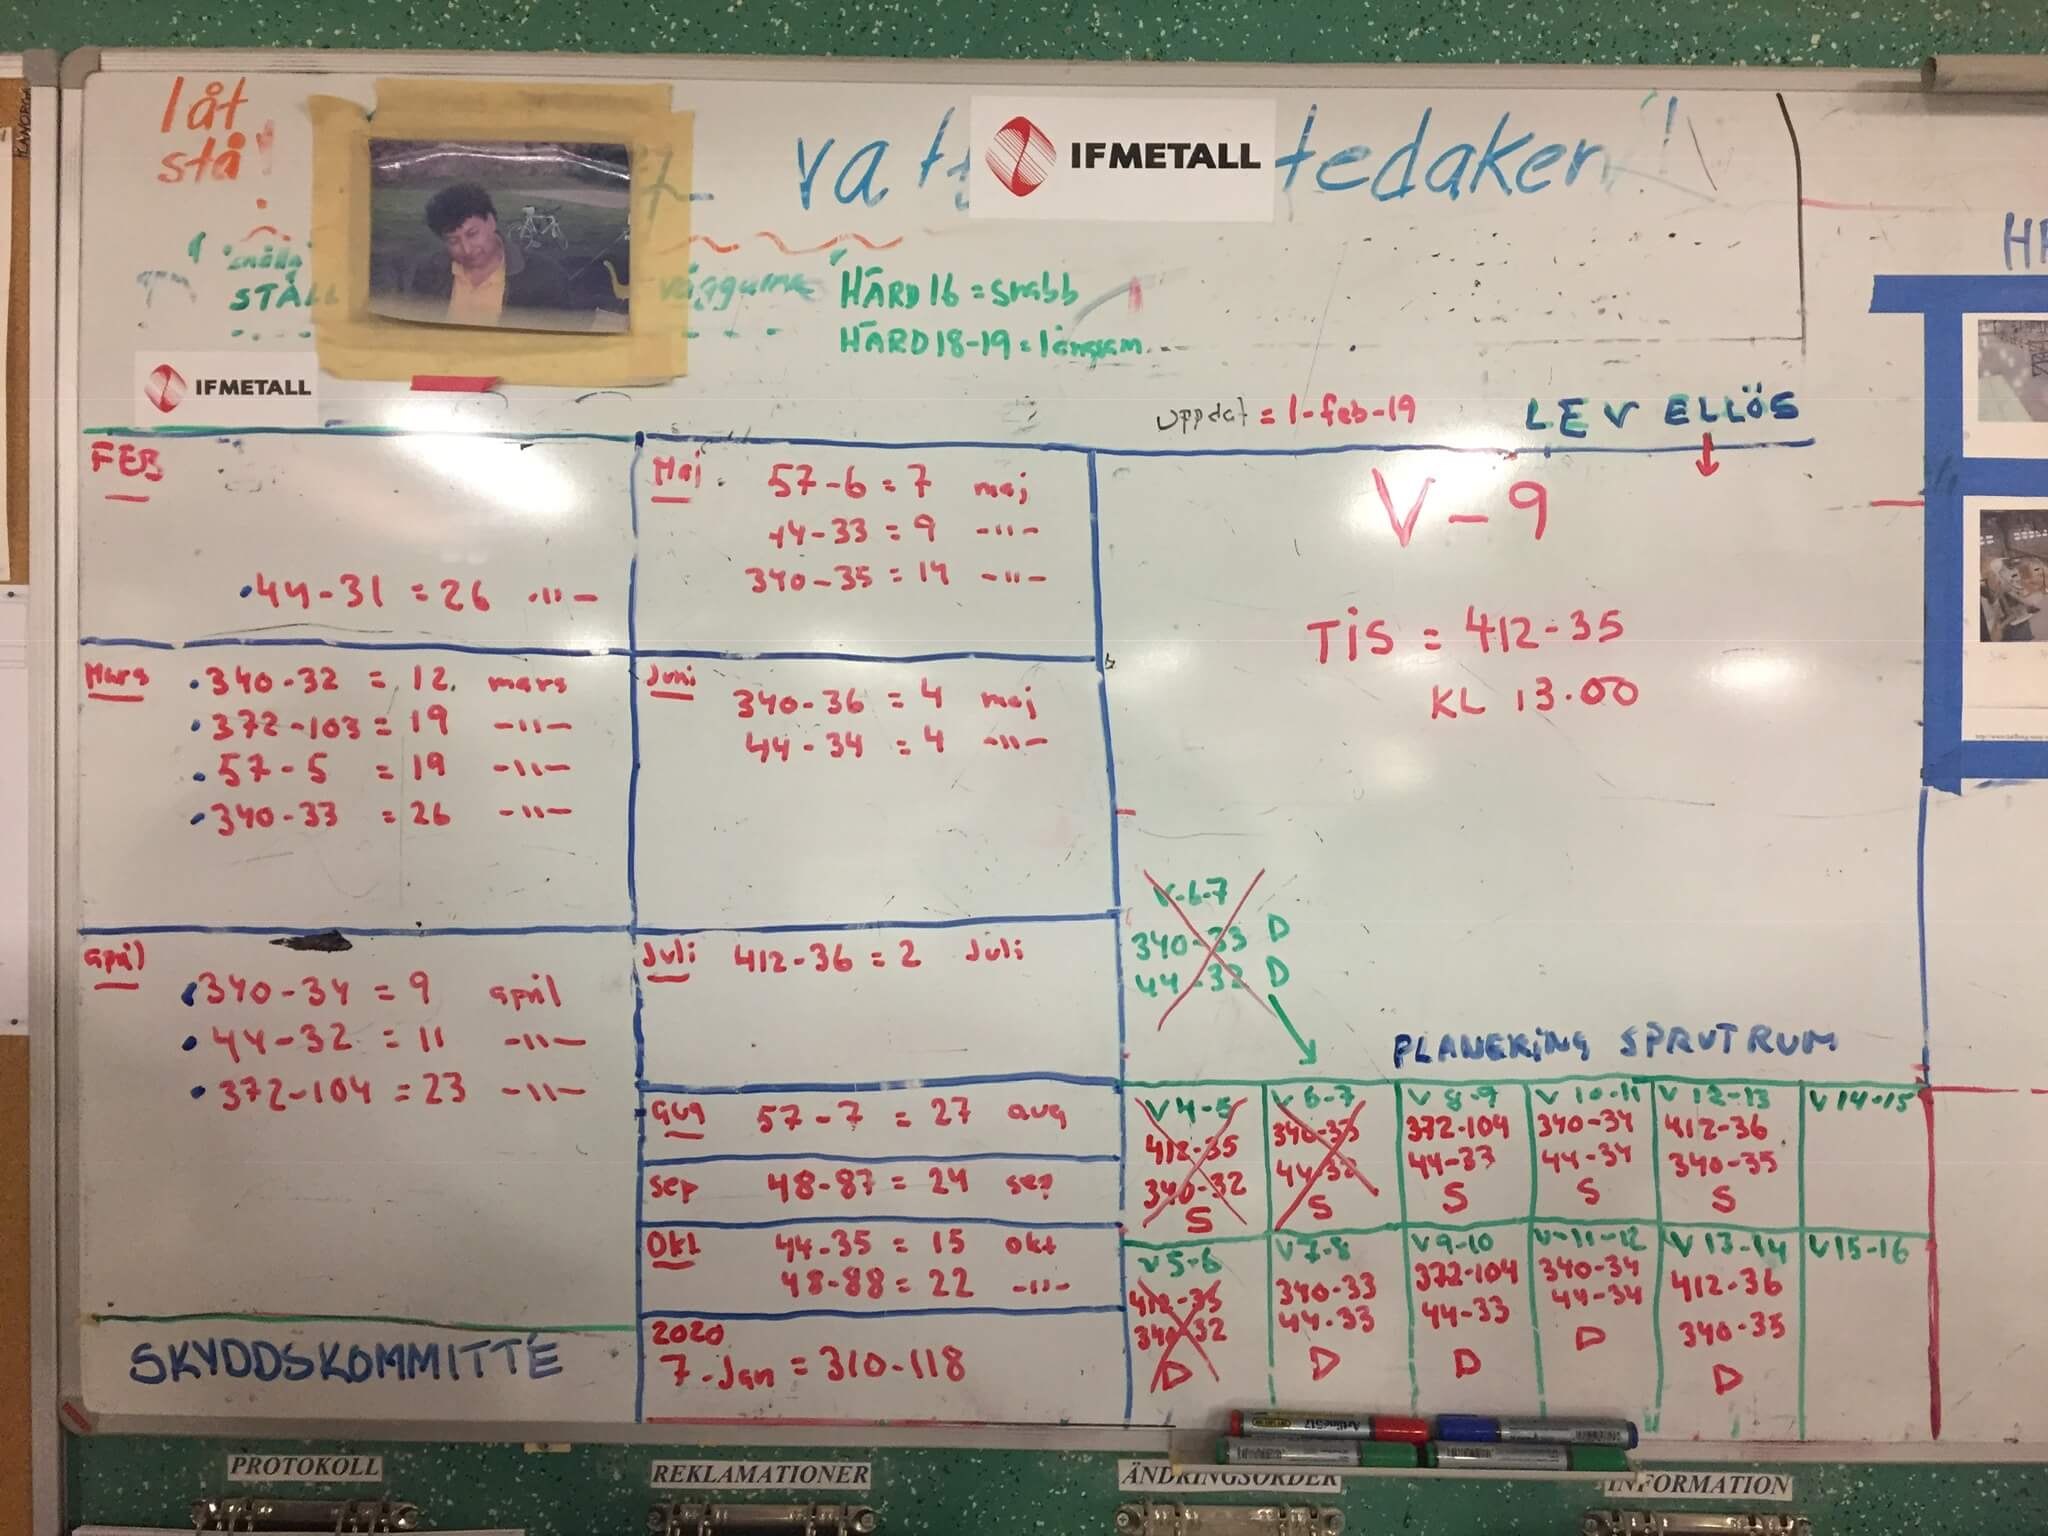 låt
stå!
vat
IFMETALL
tedaken!
snälla
STÄLL
väggarna
HÄRD 16 = snabb
HÄRD 18-19 = långsam
IFMETALL
uppdat = 1-feb-19
LEV ELLÖS
FEB
44-31 = 26 -"-
Mars
340-32 = 12. mars
372-103 = 19 -"-
57-5 = 19 -"-
340-33 = 26 -"-
april
340-34 = 9 april
44-32 = 11 -"-
372-104 = 23 -"-
SKYDDSKOMMITTÉ
Maj
57-6 = 7 maj
44-33 = 9 -"-
340-35 = 14 -"-
Juni
340-36 = 4 maj
44-34 = 4 -"-
Juli 412-36 = 2 Juli
aug 57-7 = 27 aug
sep 48-87 = 24 sep
Okt 44-35 = 15 okt
48-88 = 22 -"-
2020
7-Jan = 310-118
V-9
TIS = 412-35
KL 13.00
V-6-7
340-33 D
44-32 D
PLANERING SPRUTRUM
V 4-5
412-35
340-32
S
V 6-7
340-33
44-32
S
V 8-9
372-104
44-33
S
V 10-11
340-34
44-34
S
V 12-13
412-36
340-35
S
V 14-15
V 5-6
412-35
340-32
D
V 7-8
340-33
44-33
D
V 9-10
372-104
44-33
D
V-11-12
340-34
44-34
D
V 13-14
412-36
340-35
D
V 15-16
PROTOKOLL
REKLAMATIONER
ÄNDRINGSORDER
INFORMATION